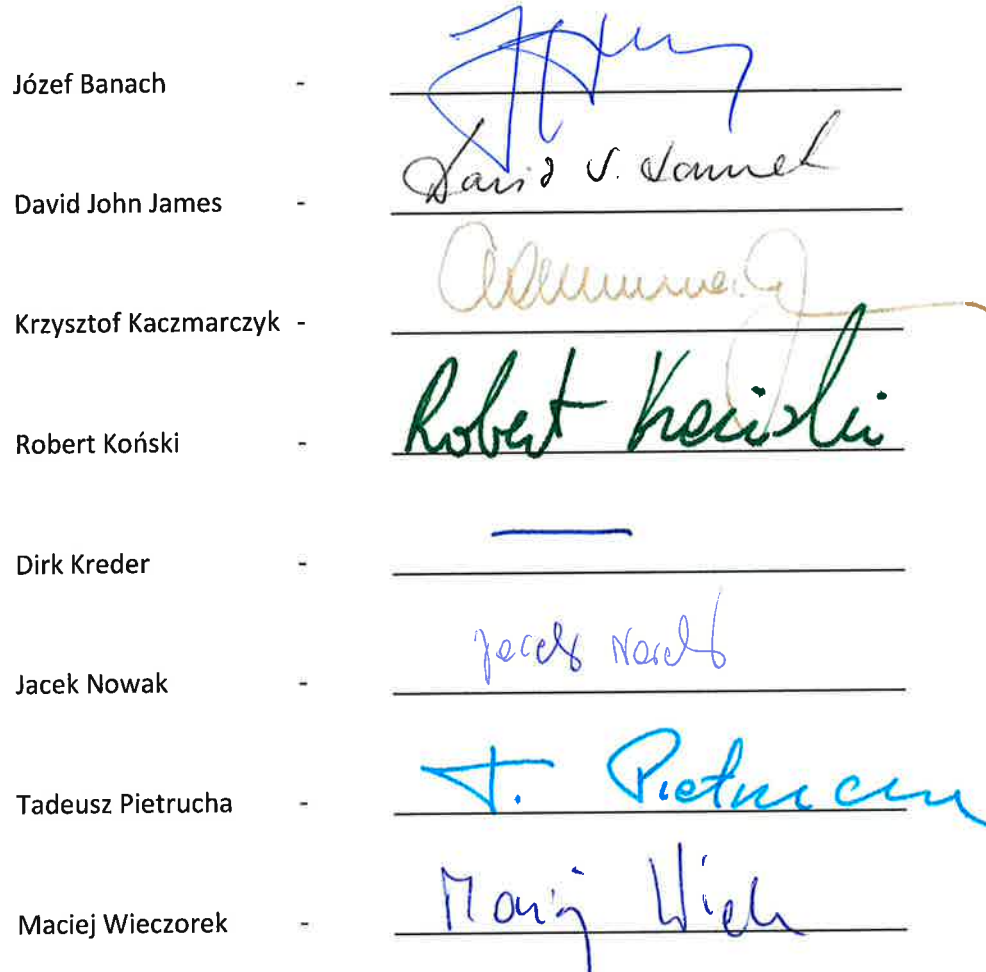 Józef Banach -
David John James - David J. James
Krzysztof Kaczmarczyk -
Robert Koński - Robert Koński
Dirk Kreder - —
Jacek Nowak - Jacek Nowak
Tadeusz Pietrucha - T. Pietrucha
Maciej Wieczorek - Maciej